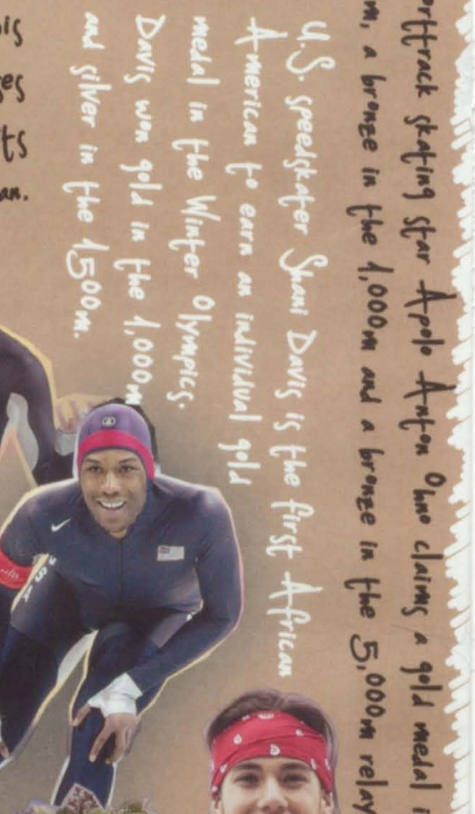 orttrack skating star Apolo Anton Ohno claims a gold medal i
m, a bronze in the 1,000m and a bronze in the 5,000m relay
U.S. speedskater Shani Davis is the first African
American to earn an individual gold
medal in the Winter Olympics.
Davis won gold in the 1,000m
and silver in the 1500m.
ts
an.